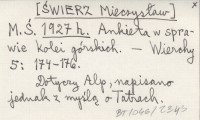 [ŚWIERZ Mieczysław]
M.Ś. 1927 h. Ankieta w spra-
wie kolei górskich. — Wierchy
5: 174-176.
Dotyczy Alp, napisano
jednak z myślą o Tatrach.
BT1044/2543